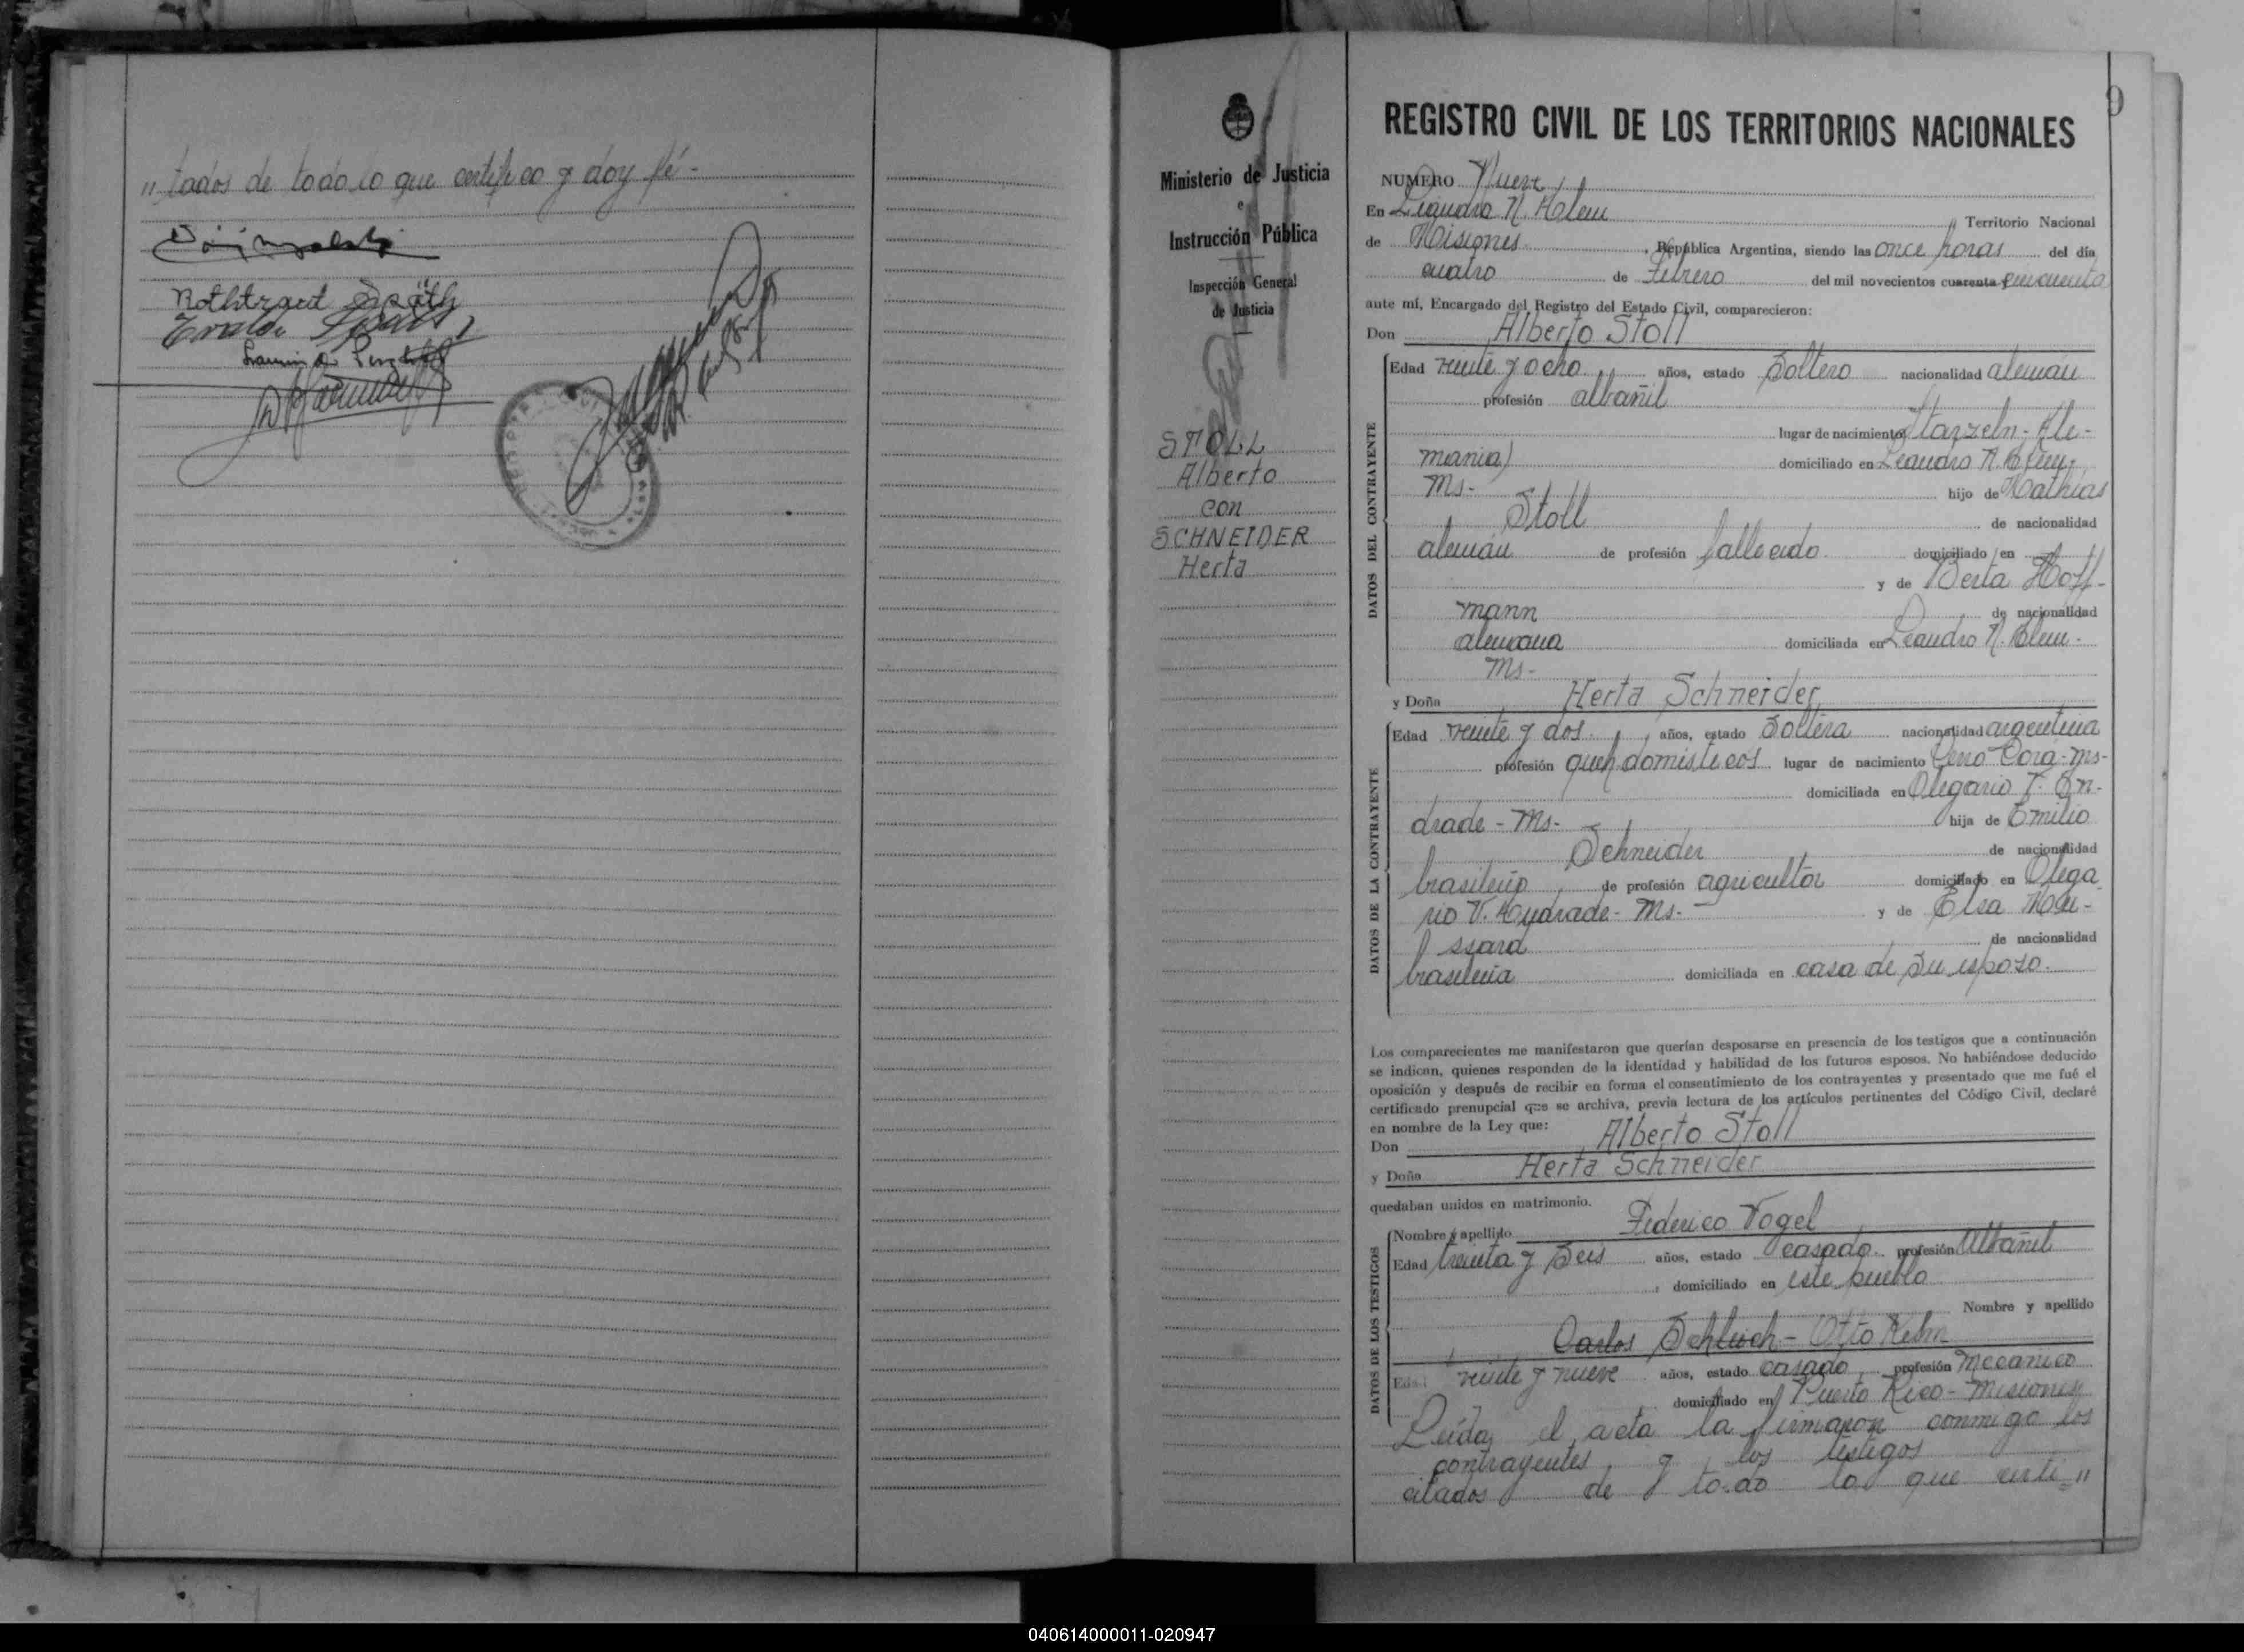 " tados de todo lo que certifico y doy fé -
Rothtraut Späth
9
Ministerio de Justicia
e
Instrucción Pública
Inspección General
de Justicia
STOLL
Alberto
con
SCHNEIDER
Herta
REGISTRO CIVIL DE LOS TERRITORIOS NACIONALES
NUMERO Nueve
En Leandro N. Alem Territorio Nacional
de Misiones , República Argentina, siendo las once horas del día
cuatro de Febrero del mil novecientos cuarenta y cincuenta
ante mí, Encargado del Registro del Estado Civil, comparecieron:
Don Alberto Stoll
DATOS DEL CONTRAYENTE
Edad veinte y ocho años, estado Soltero nacionalidad alemán
profesión albañil
lugar de nacimiento Starzeln - Ale-
mania) domiciliado en Leandro N. Alem-
Ms- hijo de Mathias
Stoll de nacionalidad
alemán de profesión fallecido domiciliado en
y de Berta Hoff-
mann de nacionalidad
alemana domiciliada en Leandro N. Alem -
Ms-
y Doña Herta Schneider
DATOS DE LA CONTRAYENTE
Edad veinte y dos años, estado Soltera nacionalidad argentina
profesión queh. domésticos lugar de nacimiento Cerro Corá - Ms-
domiciliada en Olegario V. An-
drade - Ms- hija de Emilio
Schneider de nacionalidad
brasileño de profesión agricultor domiciliado en Olega
rio V. Andrade - Ms. - y de Elsa
de nacionalidad
brasileña domiciliada en casa de su esposo.
Los comparecientes me manifestaron que querían desposarse en presencia de los testigos que a continuación
se indican, quienes responden de la identidad y habilidad de los futuros esposos. No habiéndose deducido
oposición y después de recibir en forma el consentimiento de los contrayentes y presentado que me fué el
certificado prenupcial que se archiva, previa lectura de los artículos pertinentes del Código Civil, declaré
en nombre de la Ley que:
Don Alberto Stoll
y Doña Herta Schneider
quedaban unidos en matrimonio.
DATOS DE LOS TESTIGOS
Nombre y apellido Federico Vogel
Edad treinta y Seis años, estado casado profesión Albañil
, domiciliado en este pueblo
Nombre y apellido
Carlos - Otto
Edad veinte y nueve años, estado casado profesión Mecanico
domiciliado en Puerto Rico - Misiones
Leída el acta la firmaron conmigo los
contrayentes y los testigos
citados de todo lo que certi - "
040614000011-020947